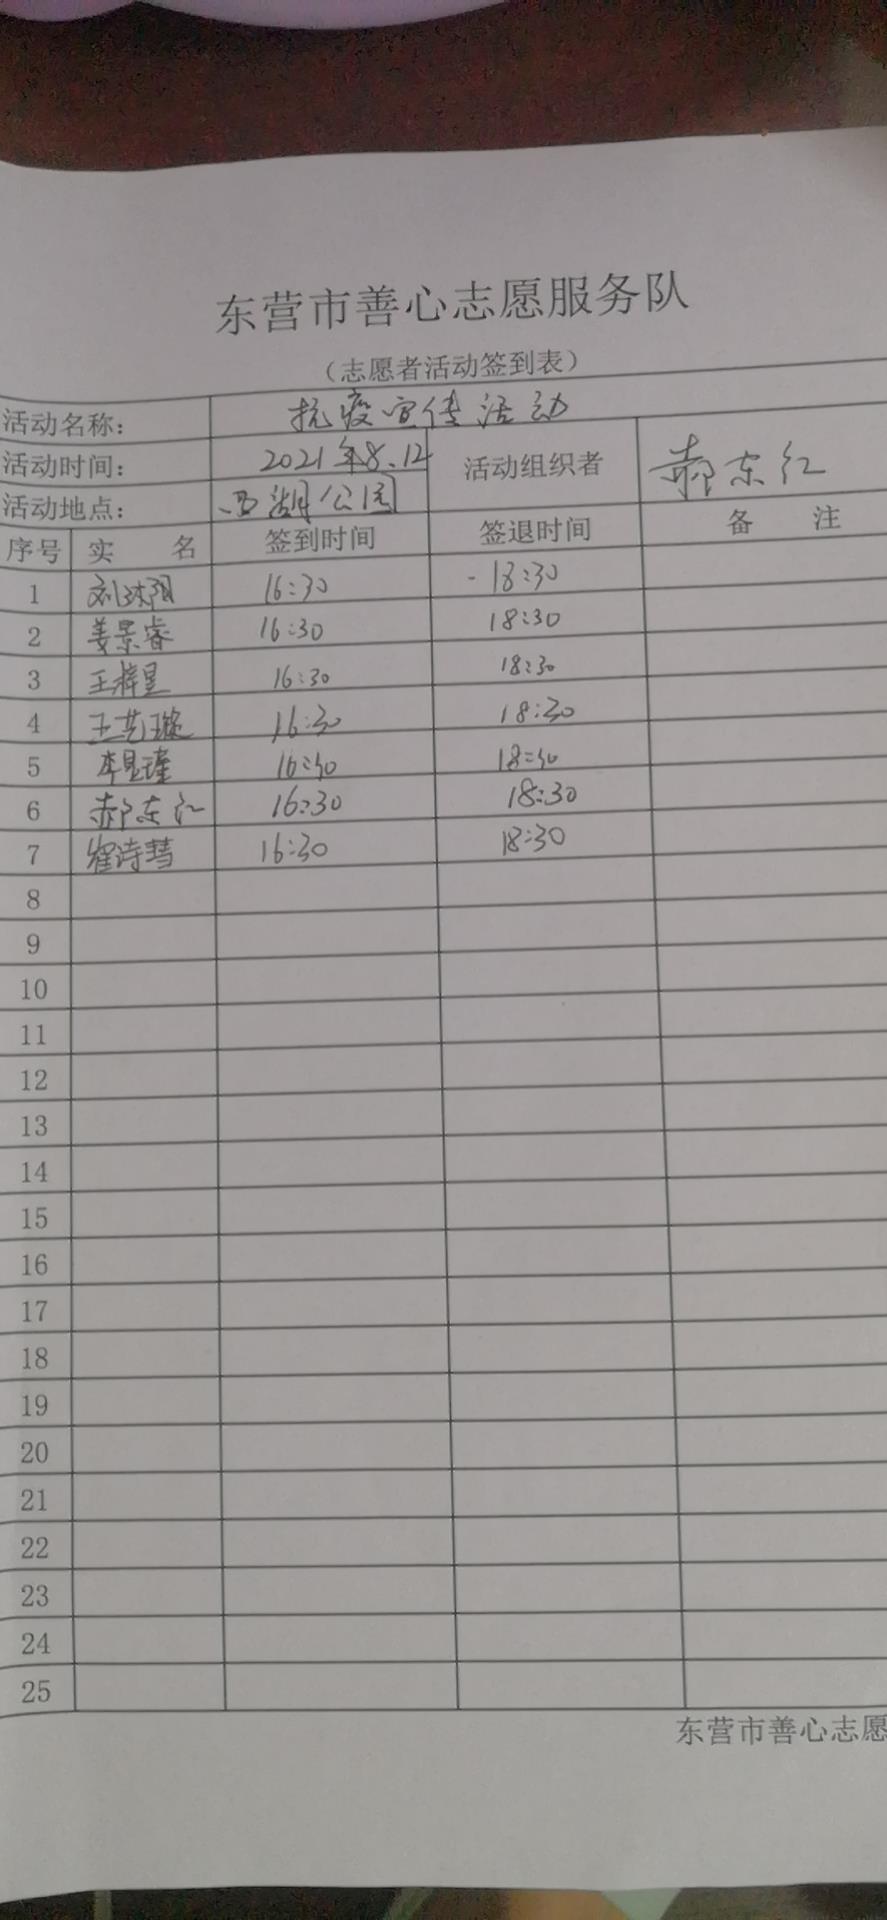 东营市善心志愿服务队
（志愿者活动签到表）
活动名称： 抗疫宣传活动
活动时间： 2021年8.12 活动组织者 郝东红
活动地点： 西湖公园
序号 实 名 签到时间 签退时间 备 注
1 刘沐阳 16:30 18:30
2 姜景睿 16:30 18:30
3 王梓星 16:30 18:30
4 王艺璇 16:30 18:30
5 李昱瑾 16:30 18:30
6 郝东红 16:30 18:30
7 翟诗彗 16:30 18:30
8
9
10
11
12
13
14
15
16
17
18
19
20
21
22
23
24
25
东营市善心志愿